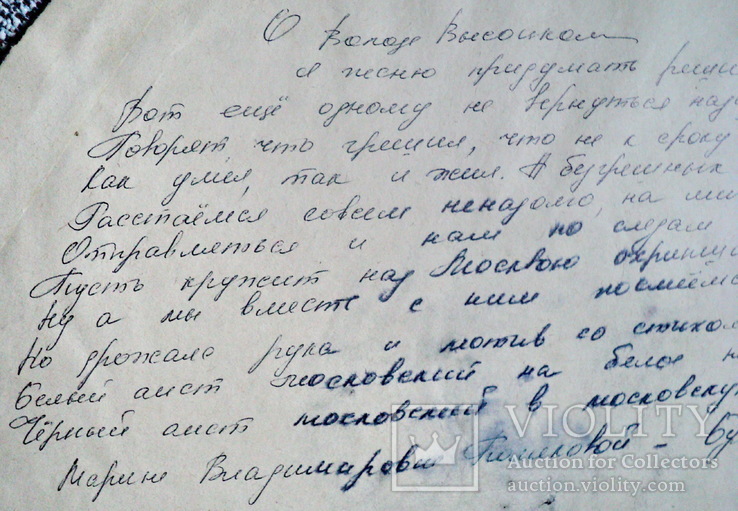 О Володе Высоцком
я песню придумать реши
Вот ещё одному не вернуться наз
Говорят что грешил, что не к сроку
Как умел, так и жил. А безгрешных
Расстаёмся совсем ненадолго, на ми
Отправляться и нам по следам
Пусть кружит над Москвою охрипши
Ну а мы вместе с ним посмеёмс
Но дрожала рука и мотив со стихом
Белый аист московский на белое н
Чёрный аист московский в московску
Марине Владимировне - Бу
VIOLITY
Auction for Collectors
auction.violity.com